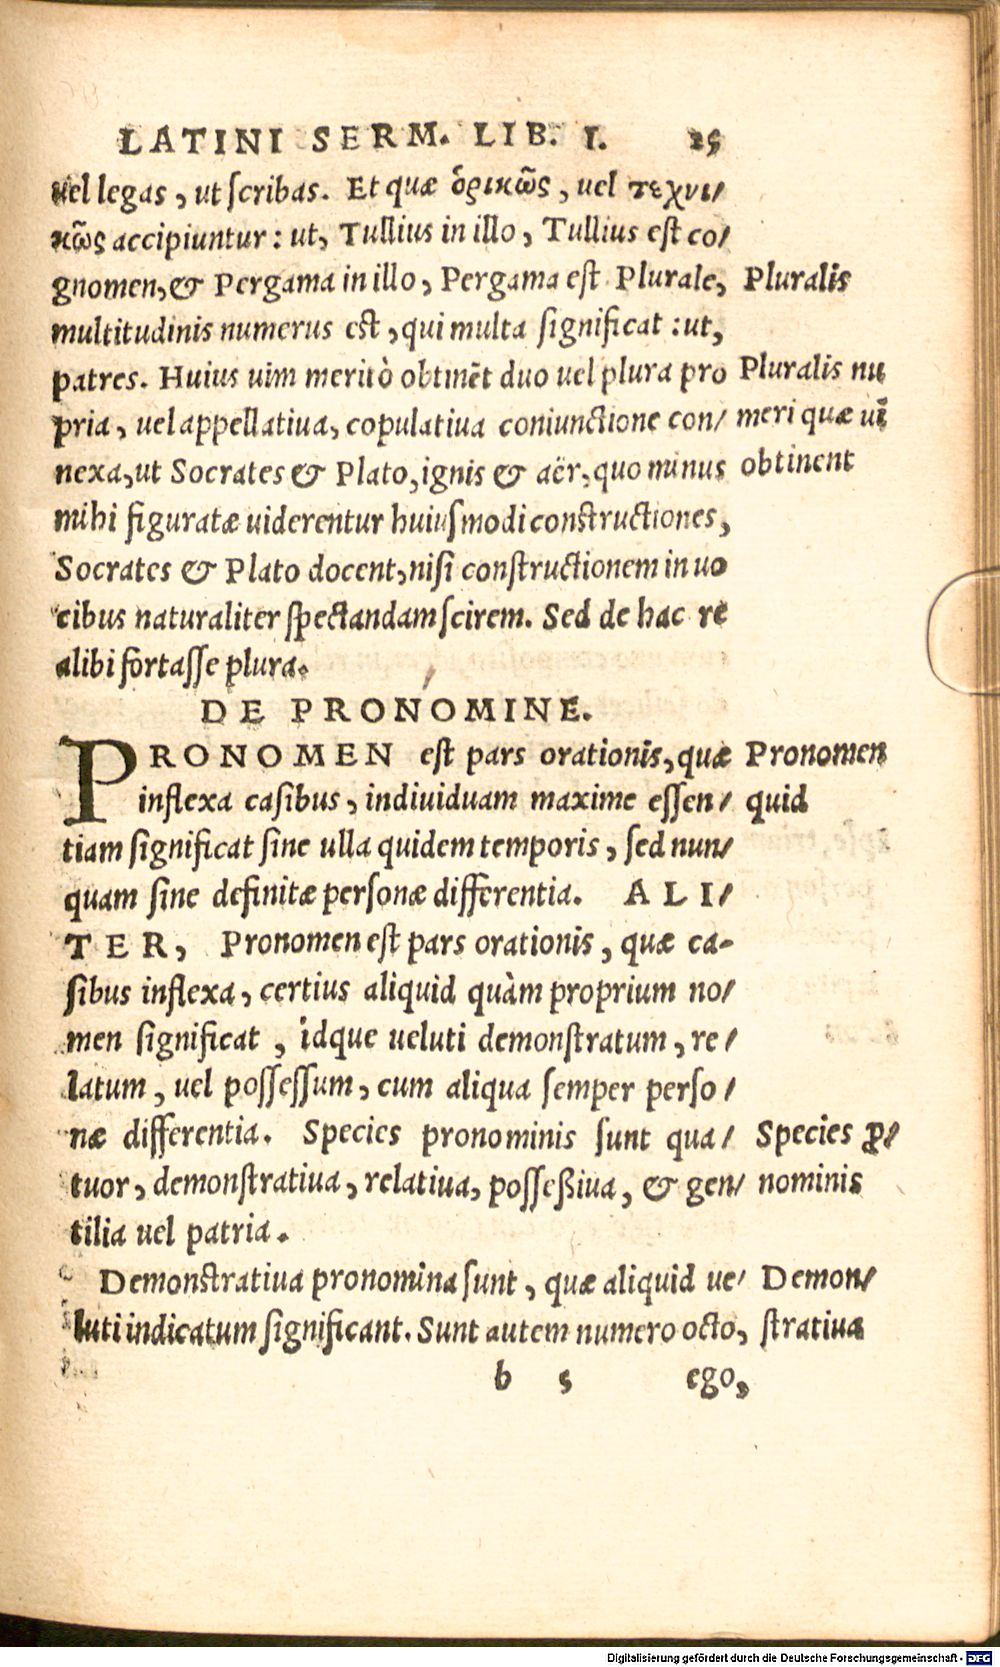 LATINI SERM. LIB. I. 25
uel legas, ut scribas. Et quæ ὁρικῶς, uel τεχνι/
κῶς accipiuntur: ut, Tullius in illo, Tullius est co/
gnomen, & Pergama in illo, Pergama est Plurale,
Pluralis
multitudinis numerus est, qui multa significat: ut,
patres. Huius uim meritò obtinēt duo uel plura pro
pria, uel appellatiua, copulatiua coniunctione con/
nexa, ut Socrates & Plato, ignis & aër, quo minus
Pluralis nu
meri quæ uī
obtinent
mihi figuratæ uiderentur huiusmodi constructiones,
Socrates & Plato docent, nisi constructionem in uo
cibus naturaliter spectandam scirem. Sed de hac re
alibi fortasse plura.
DE PRONOMINE.
PRONOMEN est pars orationis, quæ
inflexa casibus, indiuiduam maxime essen/
Pronomen
quid
tiam significat sine ulla quidem temporis, sed nun/
quam sine definitæ personæ differentia. ALI/
TER, Pronomen est pars orationis, quæ ca-
sibus inflexa, certius aliquid quàm proprium no/
men significat, idque ueluti demonstratum, re/
latum, uel possessum, cum aliqua semper perso/
næ differentia. Species pronominis sunt qua/
tuor, demonstratiua, relatiua, posseßiua, & gen/
Species ꝓ/
nominis
tilia uel patria.
Demonstratiua pronomina sunt, quæ aliquid ue/
luti indicatum significant. Sunt autem numero octo,
Demon/
stratiua
b 5 ego,
Digitalisierung gefördert durch die Deutsche Forschungsgemeinschaft - DFG